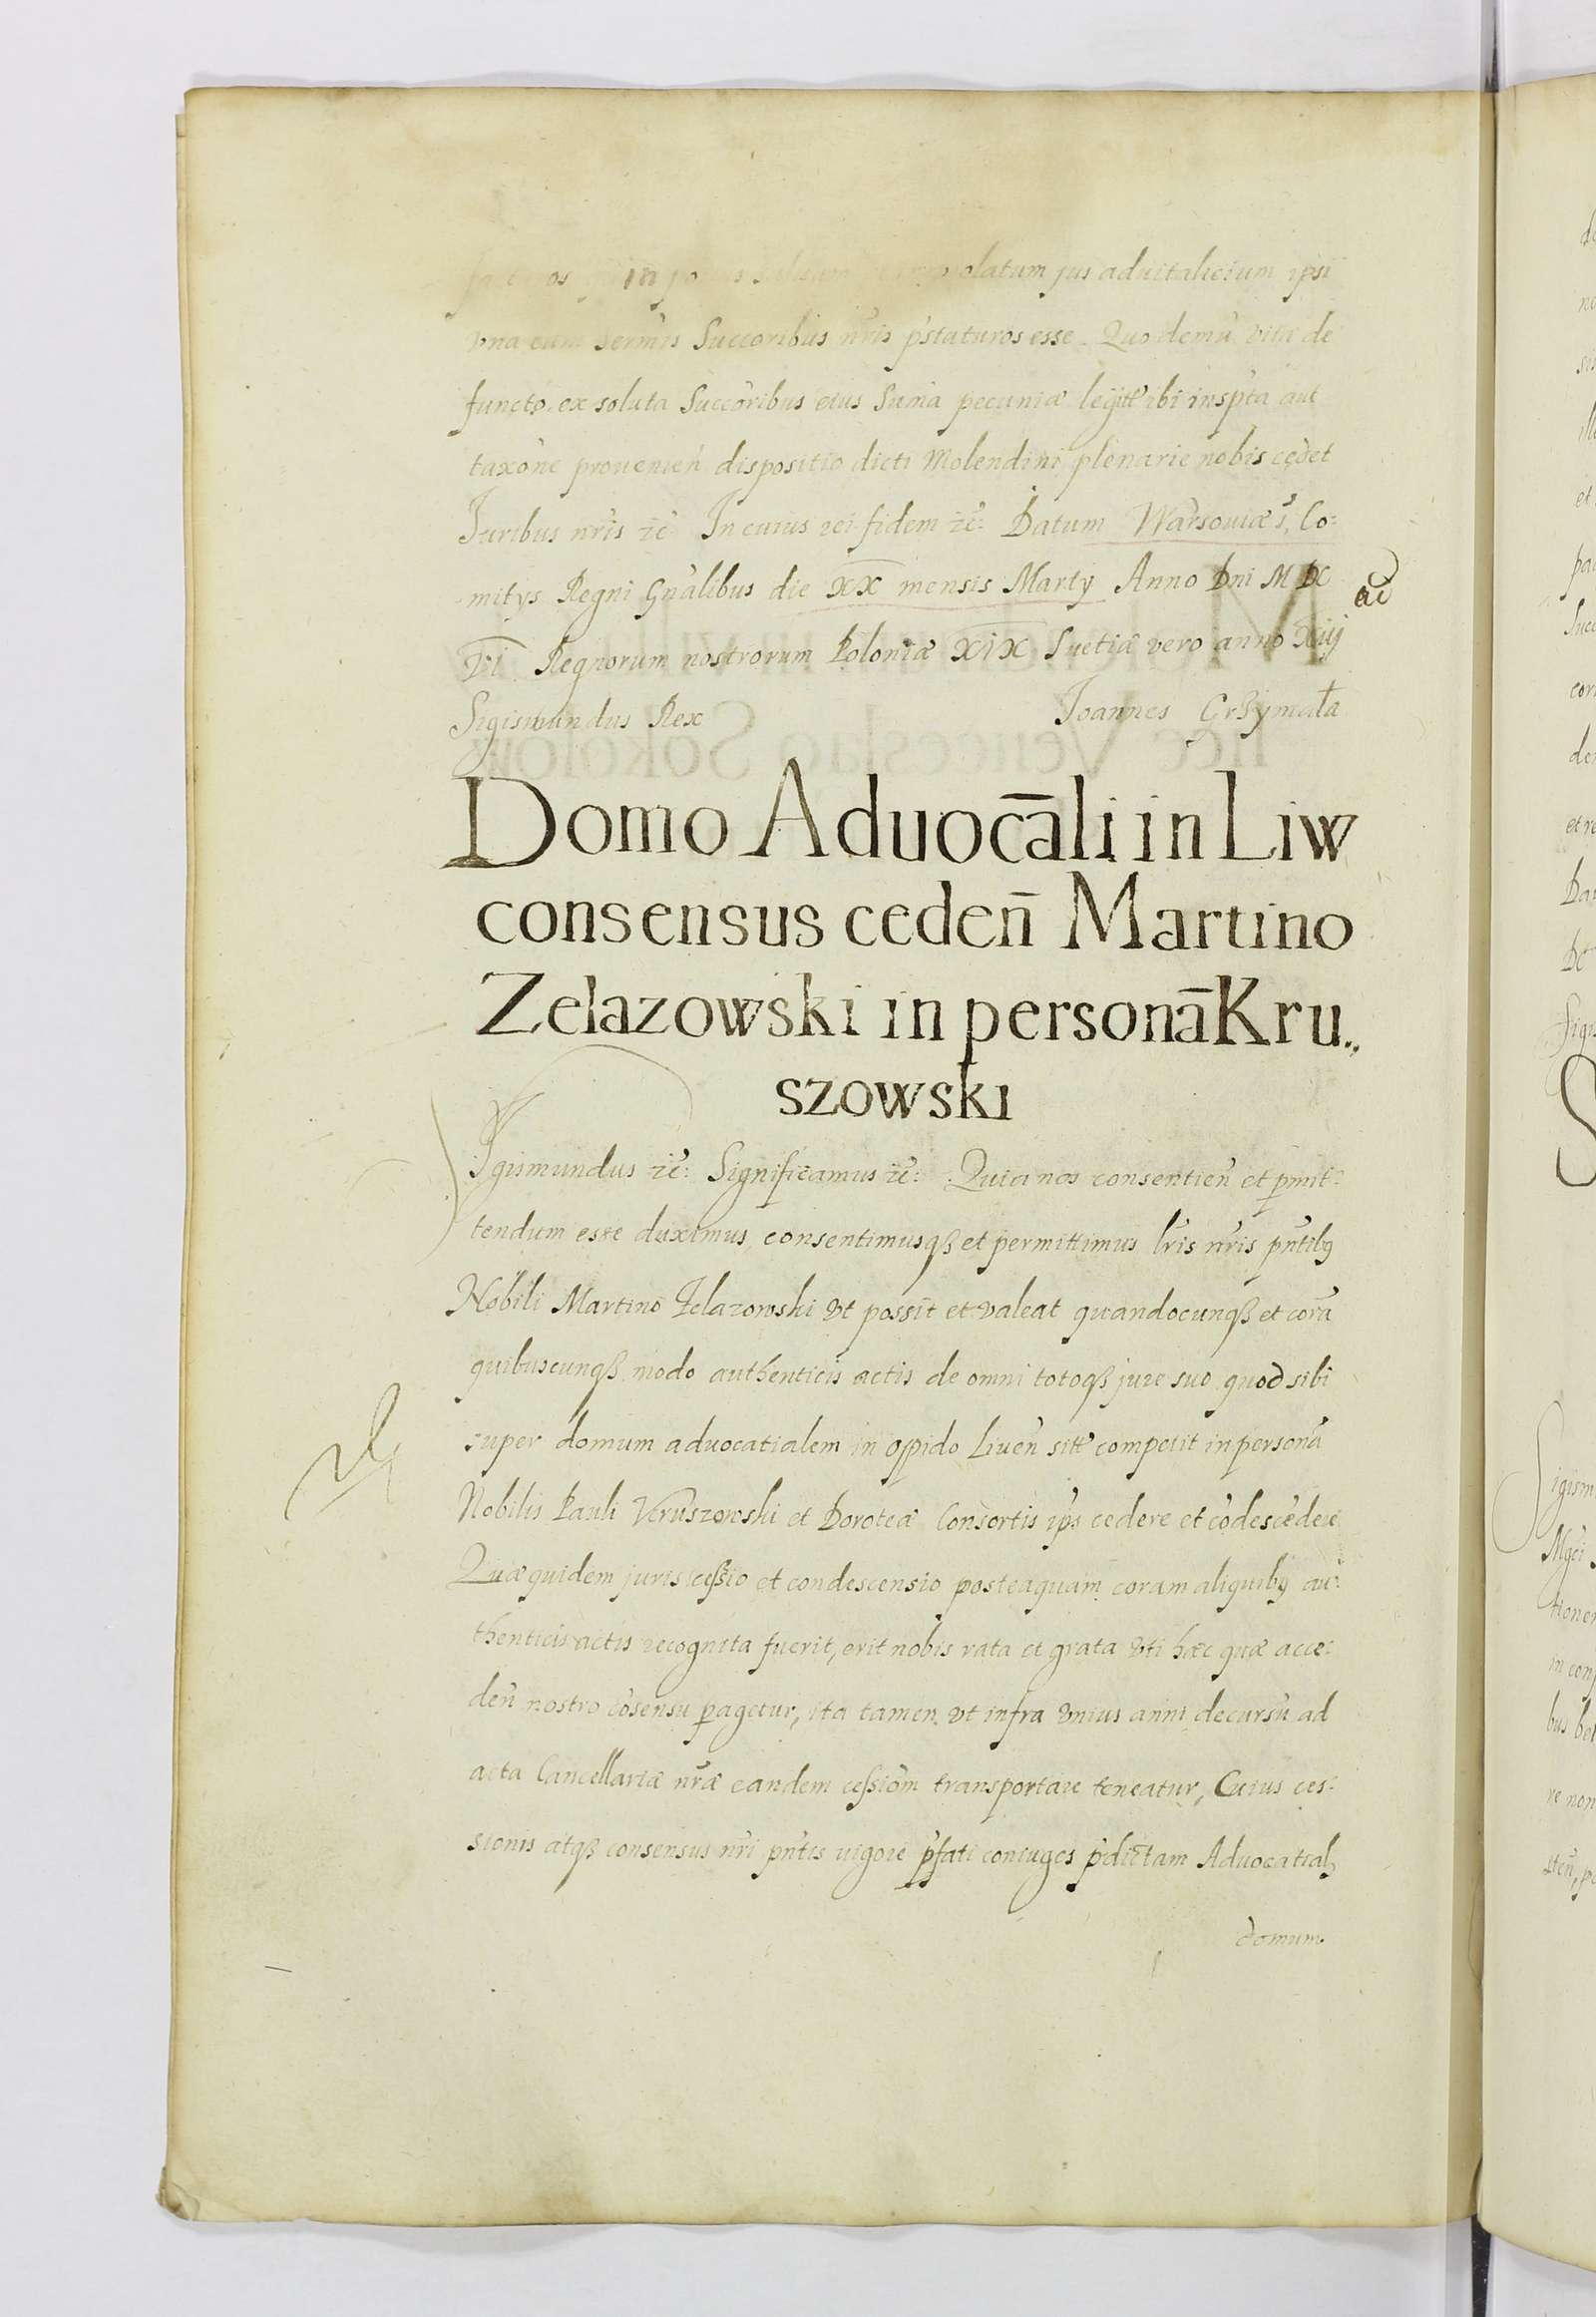 olatum jus aduitalicium ipsi
vna cum sermis Succoribus nris pstaturos esse. Quo demū vita de
functo ex soluta Succoribus eius Suma pecuniæ legitte ibi inspta aut
taxone prouenien dispositio dicti Molendini plenarie nobis cedet
Juribus nris zc̄ In cuius rei fidem zc̄: Datum Warsouiæ Co:
mitys Regni Gnalibus die XX mensis Marty Anno Dni M DC
VI Regnorum nostrorum Poloniæ XIX Suetiæ vero anno Xiij
Sigismundus Rex Joannes Grzymała
Domo Aduocāli in Liw
consensus ceden̄ Martino
Zelazowski in personā Kru..
szowski
Sigismundus zc̄: Significamus zc̄: Quia nos consentien̄ et pmit:
tendum esse duximus consentimusqȝ et permittimus lris nris pntibȝ
Nobili Martino Zelazowski vt possit et valeat quandocunqȝ et corā
quibuscunqȝ modo authenticis actis de omni totoqȝ jure suo quod sibi
super domum aduocatialem in oppido Liuen̄ sitt competit in personā
Nobilis Pauli Kruszowski et Doroteæ Consortis ips cedere et cōdescēdere
Quæ quidem juris cessio et condescensio posteaquam coram aliquibȝ au:
thenticis actis recognita fuerit, erit nobis rata et grata vti hæc quæ acce:
den̄ nostro cōsensu pagetur, ita tamen vt infra vnius anni decursū ad
acta Cancellariæ nræ eandem cessiom transportare teneatur, Cuius ces:
sionis atqȝ consensus nri pntis uigore pfati coniuges pdictam Aduocatialȝ
domum